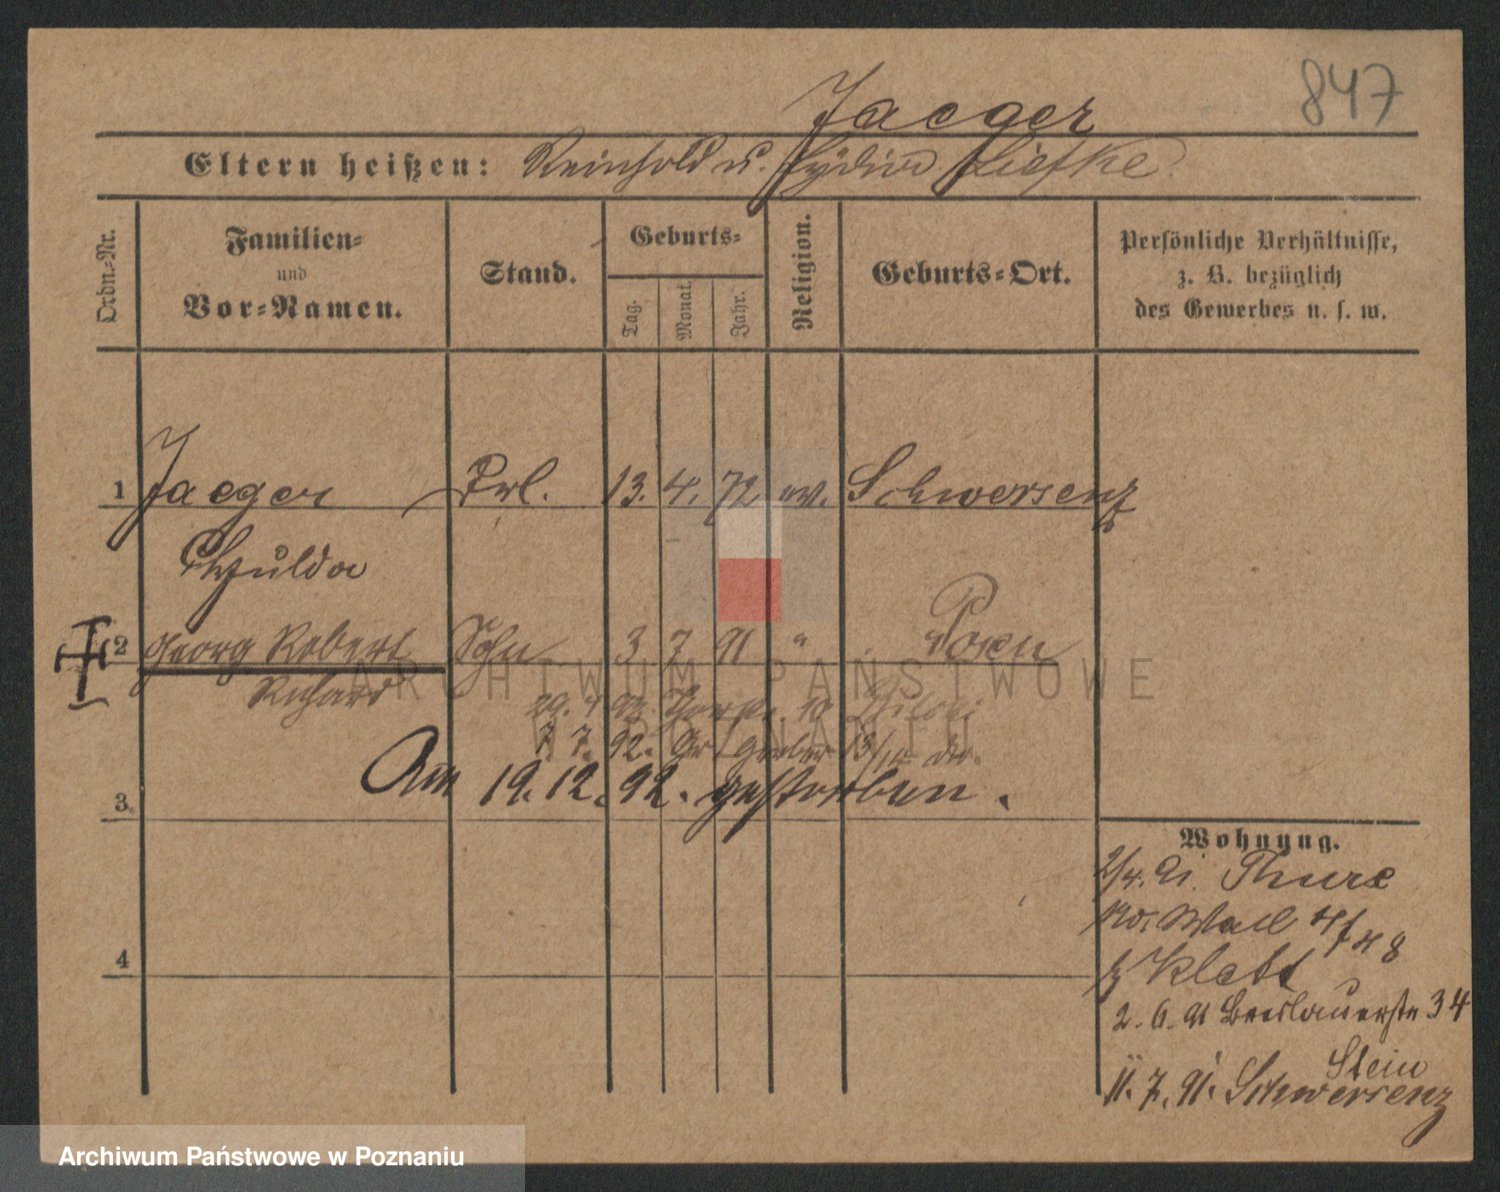 847
Jaeger
Eltern heißen: Reinhold u. Lydia Liefke
Ordn.-Nr.
Familien- und Vor-Namen.
Stand.
Geburts-
Tag.
Monat.
Jahr.
Religion.
Geburts-Ort.
Persönliche Verhältnisse,
z. B. bezüglich
des Gewerbes u. s. w.
1 Jaeger Frl. 13. 4. 72 ev. Schwersenz
Hulda
2 Georg Robert Sohn 3 7 91 " Posen
Richard
29. 4 92.
7 7. 92. Gr Gerber 13/14
Am 19. 12. 92. gestorben.
3.
4
Wohnung.
2/4. 91. Thure
No. Wall 47/48
b/ Klatt
2. 6. 91 Breslauerstr 34
Stein
11. 7. 91. Schwersenz
ARCHIWUM PAŃSTWOWE
W POZNANIU
Archiwum Państwowe w Poznaniu